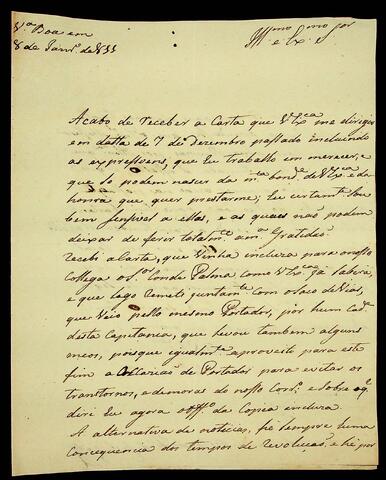 Vª Boa em
8 de Janrº de 811
Illmo e Exmo Snr
Acabo de receber a Carta que VExca me dirigio
em datta de 7 de Dezembro passado incluindo
as expressoens, que Eu trabalho em merecer, e
que se podem nascer da mta bonde de VExca e da
honra que quer prestarme; Eu certamte Sou
bem sensivel a ellas, e as quaes naõ podem
deixar de ferir totalmte a mª Gratidaõ
Recebi a Carta, que vinha incluza para o nosso
Collega o Sor Conde Palma como VExª já saberá,
e que logo remeti juntamte com o saco de Vias,
que veio pello mesmo Portador, por hum Cadº
desta Capitania, que levou tambem alguns
meos, porque igualmte aproveito para este
fim a de Portador para evitar os
transtornos, e demoras do nosso Corrº e sobre oqº
direi Eu agora da Copea incluza.
A alternativa de noticias, hé sempre huma
consequencia dos tempos de revoluçaõ, e hé por